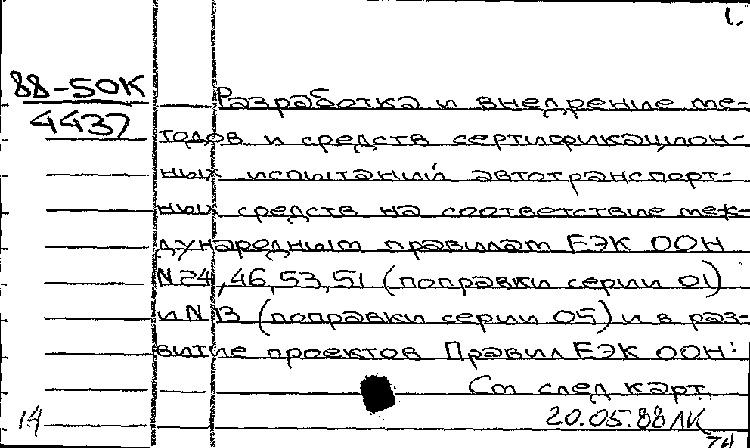 1.
88-50К
4437
Разработка и внедрение ме-
тодов и средств сертификацион-
ных испытаний автотранспорт-
ных средств на соответствие меж-
дународным правилам ЕЭК ООН
N 24, 46, 53, 51 (поправки серии 01)
и N 13 (поправки серии 05) и в раз-
витие проектов Правил ЕЭК ООН:
См след карт
14
20.05.88 ЛК